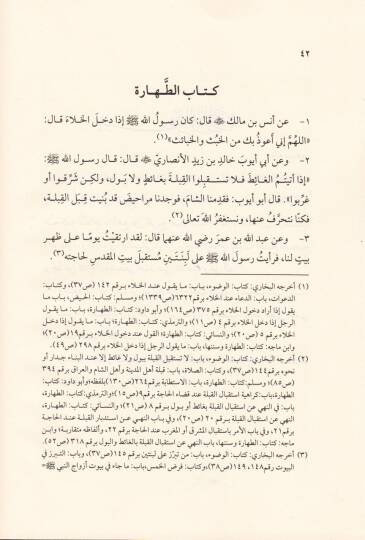 ٤٢
كتاب الطَّهارة
١- عن أنس بن مالك ﷺ قال: كان رسولُ الله ﷺ إذا دخلَ الخلاءَ قال:
«اللهمَّ إني أعوذُ بك من الخُبُث والخبائث»(١).
٢- وعن أبي أيوبَ خالدِ بن زيدٍ الأنصاريِّ قال: قال رسول الله ﷺ:
«إذا أتيتُم الغائطَ فلا تستقبِلوا القِبلةَ بغائطٍ ولا بَول، ولكِن شَرِّقوا أو
غرِّبوا». قال أبو أيوب: فقدِمنا الشامَ، فوجدنا مراحيضَ قد بُنيت قِبَل القِبلة،
فكنَّا نتحرَّفُ عنها، ونستغفرُ اللهَ تعالى(٢).
٣- وعن عبد الله بن عمرَ رضي الله عنهما قال: لقد ارتقيتُ يومًا على ظهرِ
بيتٍ لنا، فرأيتُ رسولَ الله ﷺ على لَبِنَتَينِ مُستقبلَ بيتِ المقدسِ لحاجته(٣).
(١) أخرجه البخاري: كتاب: الوضوء، باب: ما يقول عند الخلاء برقم ١٤٢ (ص٣٧)، وكتاب:
الدعوات، باب: الدعاء عند الخلاء برقم ٦٣٢٢ (ص١٣٣٩)، ومسلم: كتاب: الحيض، باب ما
يقول إذا أراد دخول الخلاء برقم ٣٧٥ (ص١٦٤)، وأبو داود: كتاب: الطهارة، باب: ما يقول
الرجل إذا دخل الخلاء برقم ٤ (ص١١)، والترمذي: كتاب: الطهارة، باب: ما يقول إذا دخل
الخلاء برقم ٥ (ص٢٠)، والنسائي: كتاب: الطهارة، القول عند دخول الخلاء برقم ١٩ (ص٢٠)،
وابن ماجه: كتاب: الطهارة وسننها، باب: ما يقول الرجل إذا دخل الخلاء برقم ٢٩٨ (ص٤٩).
(٢) أخرجه البخاري: كتاب: الوضوء، باب: لا تستقبل القبلة ببول ولا غائط إلا عند البناء جدار أو
نحوه برقم ١٤٤ (ص٣٧)، وكتاب: الصلاة، باب: قبلة أهل المدينة وأهل الشام والعراق برقم ٣٩٤
(ص٨٥)، ومسلم: كتاب: الطهارة، باب: الاستطابة برقم ٢٦٤ (ص١٣٠) بلفظه، وأبو داود: كتاب:
الطهارة، باب: كراهية استقبال القبلة عند قضاء الحاجة برقم ٩ (ص١٢)، والترمذي: كتاب: الطهارة،
باب: في النهي عن استقبال القبلة بغائط أو بول برقم ٨ (ص٢١)، والنسائي: كتاب: الطهارة،
النهي عن استقبال القبلة برقم ٢٠ (ص٢٠)، وفي باب النهي عن استدبار القبلة عند الحاجة
برقم ٢١، وفي باب الأمر باستقبال المشرق أو المغرب عند الحاجة برقم ٢٢، وألفاظه متقاربة، وابن
ماجه: كتاب: الطهارة وسننها، باب: النهي عن استقبال القبلة بالغائط والبول برقم ٣١٨ (ص٥٢).
(٣) أخرجه البخاري: كتاب: الوضوء، باب: من تبرّز على لبنتين برقم ١٤٥ (ص٣٧)، وباب: التبرز في
البيوت برقم ١٤٨، ١٤٩ (ص٣٨)، وكتاب: فرض الخمس، باب: ما جاء في بيوت أزواج النبي ﷺ=